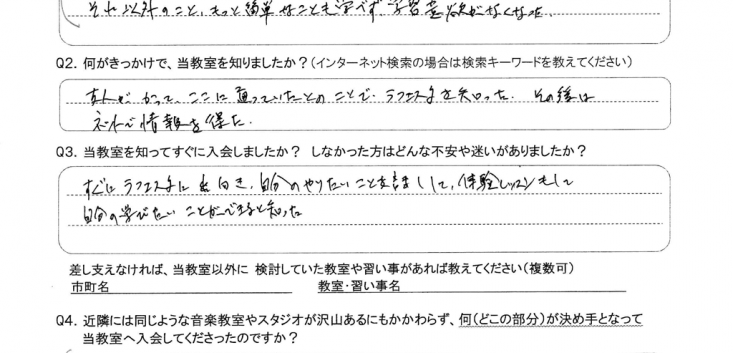 それ以外のこと、もっと簡単なことも学べず、学習意欲がなくなった。
Q2. 何がきっかけで、当教室を知りましたか？（インターネット検索の場合は検索キーワードを教えてください）
友人が かつて、ここに通っていたとのことで、ラフェスタを知った。 その後は
ネットで情報を得た。
Q3. 当教室を知ってすぐに入会しましたか？ しなかった方はどんな不安や迷いがありましたか？
すぐにラフェスタに出向き、自分のやりたいことを話しして、体験レッスンもして
自分の学びたいことができると知った
差し支えなければ、当教室以外に 検討していた教室や習い事があれば教えてください（複数可）
市町名 教室・習い事名
Q4. 近隣には同じような音楽教室やスタジオが沢山あるにもかかわらず、何（どこの部分）が決め手となって
当教室へ入会してくださったのですか？